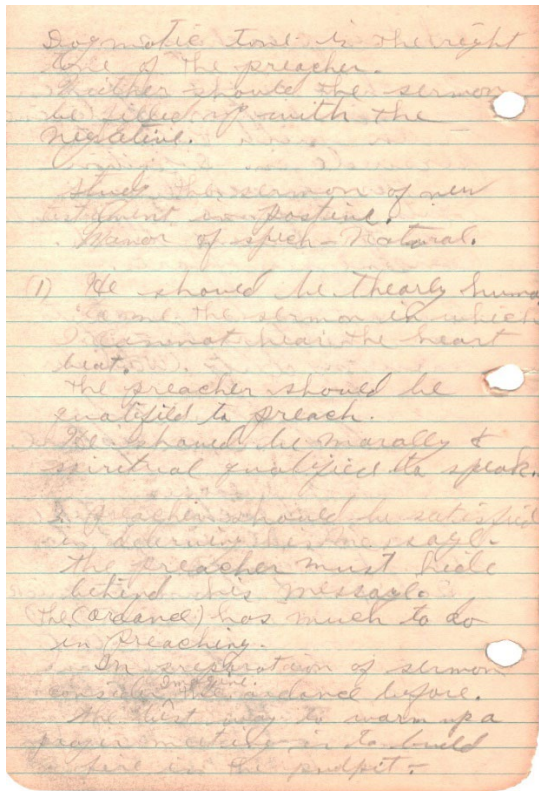 Dogmatic tone is the right
tone of the preacher.
Neither should the sermon
be filled up with the
negative.
Study the sermon of new
testament
Manor of spich - Natural.
(1) He should be thearly human
the sermon in which
I cannot hear the heart
beat.
the preacher should be
qualified to preach.
He should be morally &
spiritual qualified to speak.
preacher should be satisfied
in the message.
the preacher must hide
behind his message.
(The (ordance) has much to do
in preaching.
In preparation of sermon
Imagine
the audance before.
The best way to warm up a
prayer meeting is to build
a fire in the pudpit -